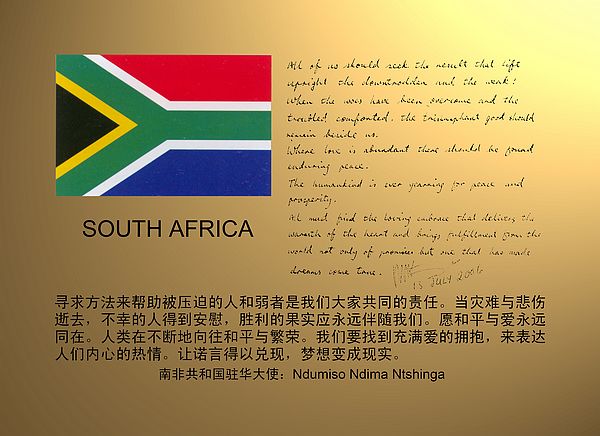 All of us should seek the result that lifts
upright the downtrodden and the weak!
When the woes have been overcome and the
troubled comforted, the triumphant good should
remain beside us.
Where love is abundant there should be found
enduring peace.
The humankind is ever yearning for peace and
prosperity.
All must find the loving embrace that delivers the
warmth of the heart and brings fulfillment from the
world not only of promises but one that has made
dreams come true.
15 JULY 2006
SOUTH AFRICA
寻求方法来帮助被压迫的人和弱者是我们大家共同的责任。当灾难与悲伤
逝去，不幸的人得到安慰，胜利的果实应永远伴随我们。愿和平与爱永远
同在。人类在不断地向往和平与繁荣。我们要找到充满爱的拥抱，来表达
人们内心的热情。让诺言得以兑现，梦想变成现实。
南非共和国驻华大使：Ndumiso Ndima Ntshinga